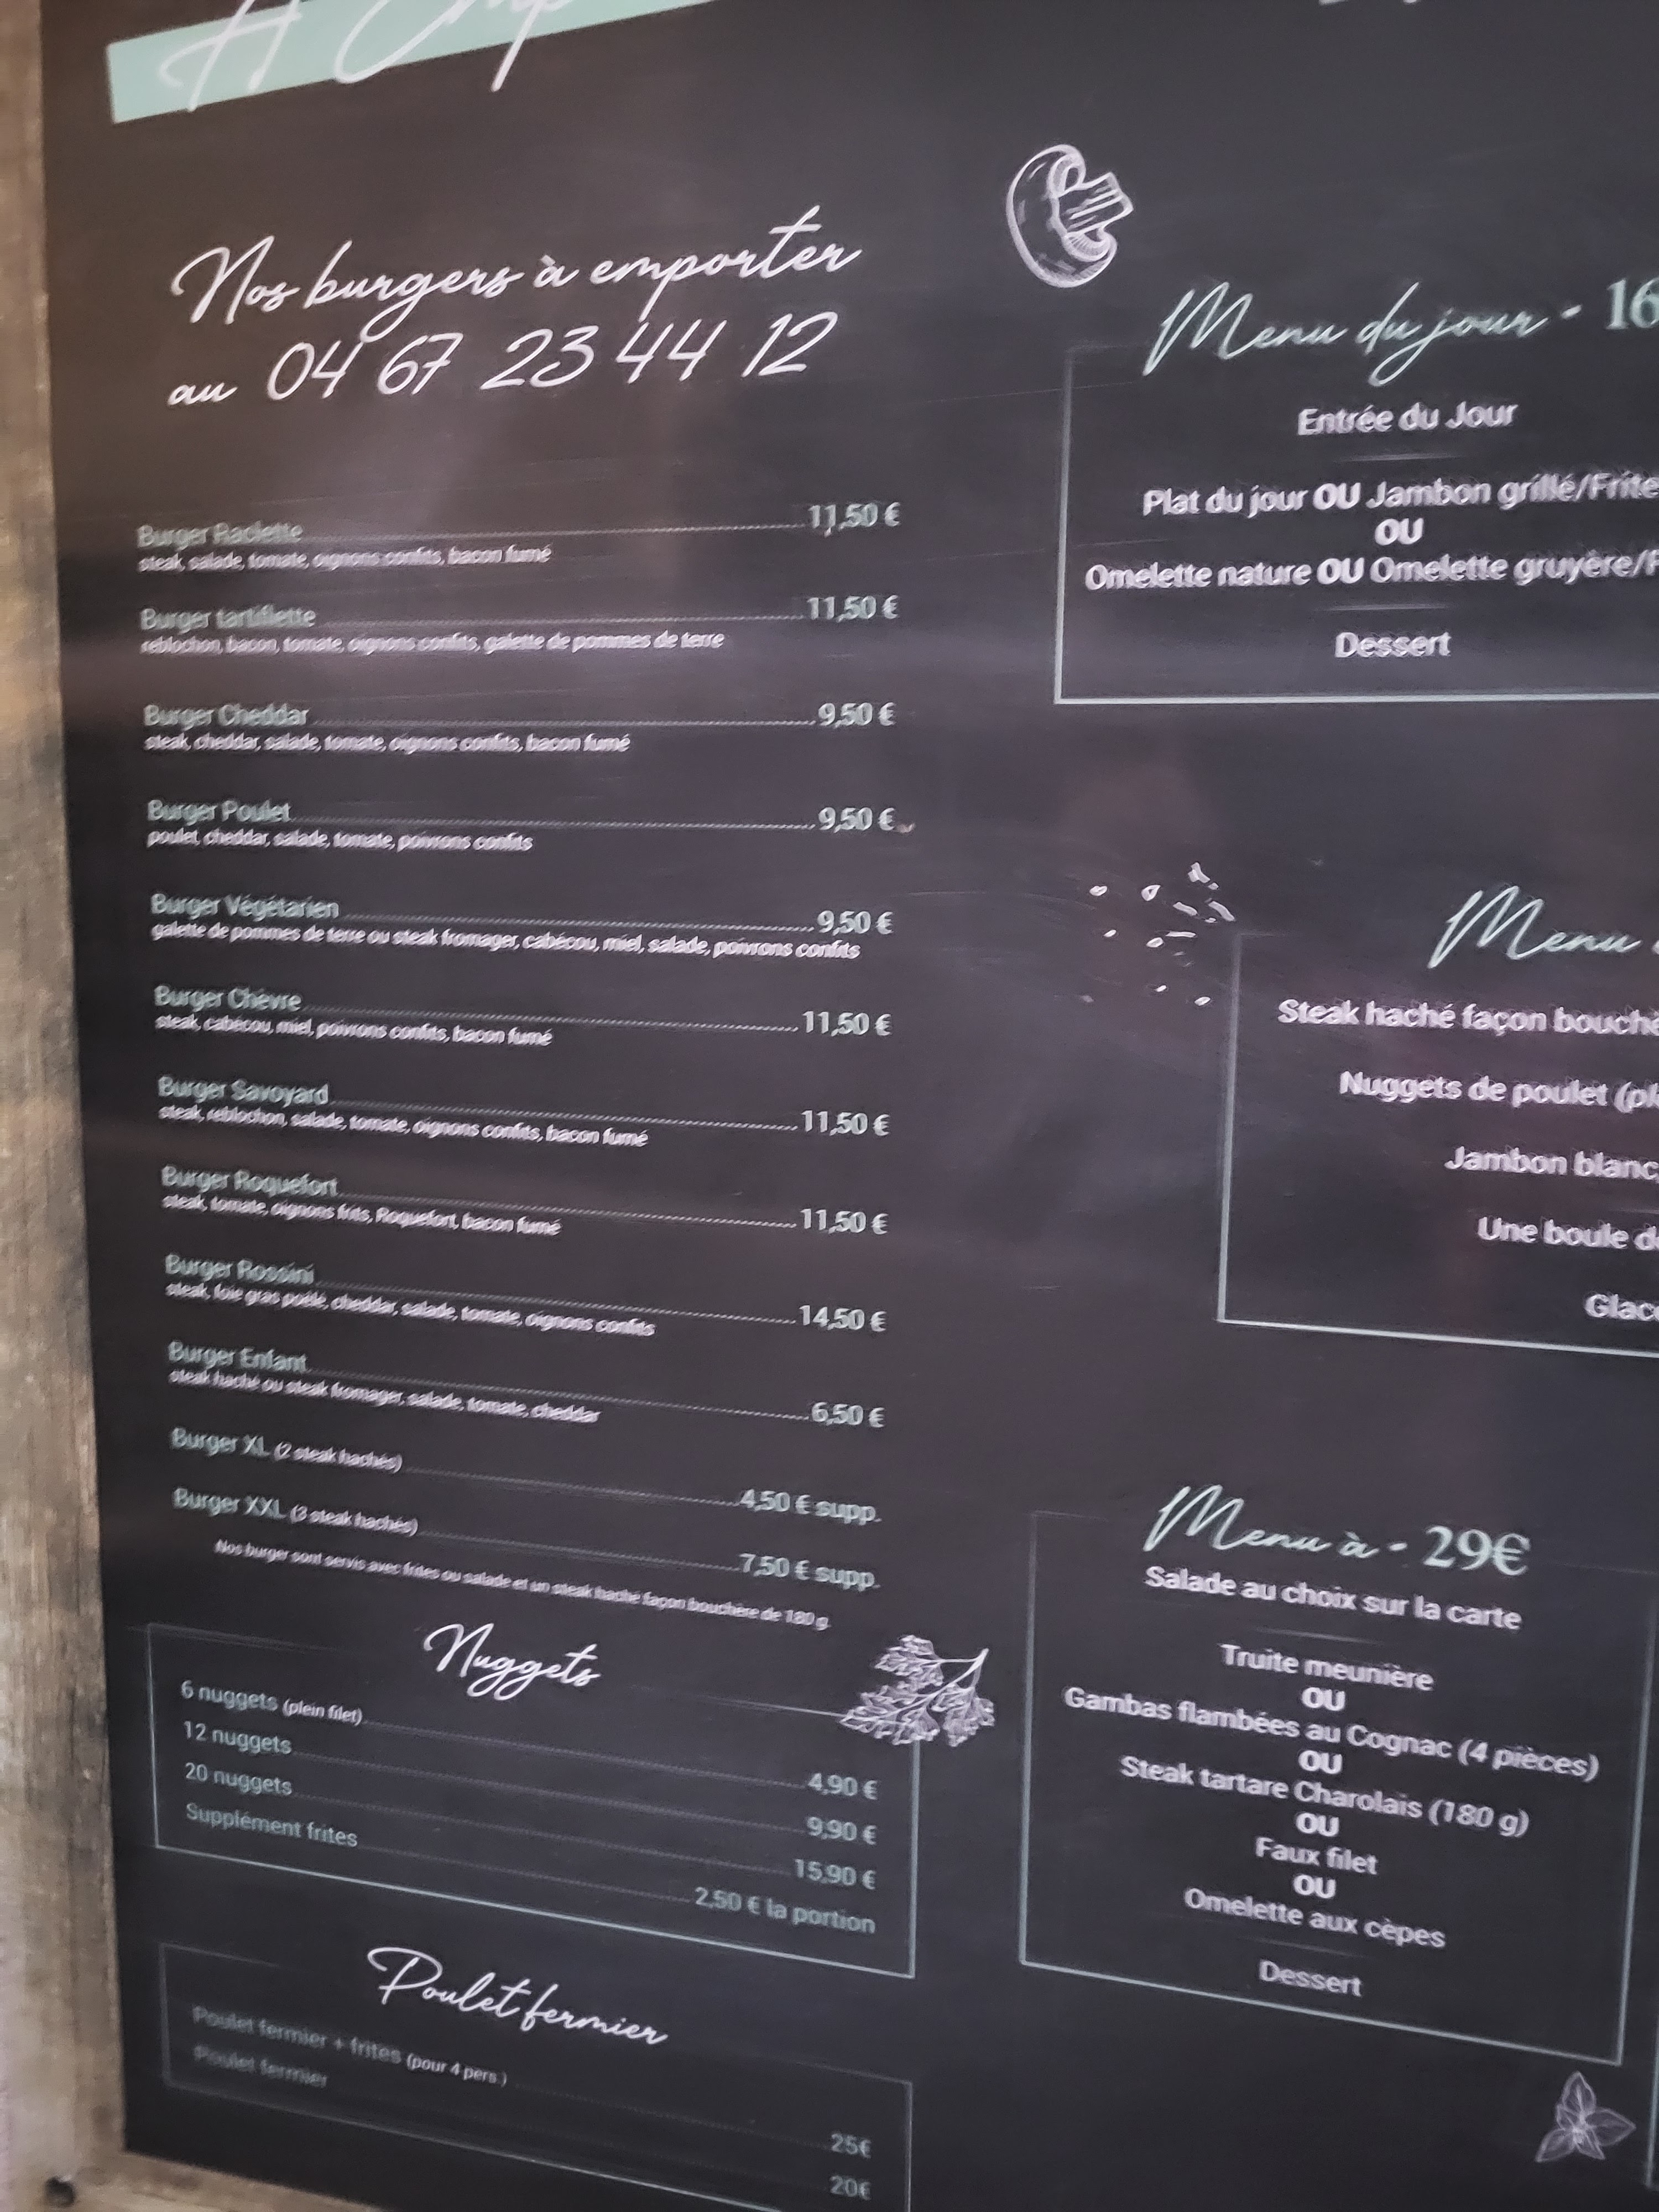 Nos burgers à emporter
au 04 67 23 44 12
Burger Raclette 11,50 €
steak, salade, tomate, oignons confits, bacon fumé
Burger tartiflette 11,50 €
reblochon, bacon, tomate, oignons confits, galette de pommes de terre
Burger Cheddar 9,50 €
steak, cheddar, salade, tomate, oignons confits, bacon fumé
Burger Poulet 9,50 €
poulet, cheddar, salade, tomate, poivrons confits
Burger Végétarien 9,50 €
galette de pommes de terre ou steak fromager, cabécou, miel, salade, poivrons confits
Burger Chèvre 11,50 €
steak, cabécou, miel, poivrons confits, bacon fumé
Burger Savoyard 11,50 €
steak, reblochon, salade, tomate, oignons confits, bacon fumé
Burger Roquefort 11,50 €
steak, tomate, oignons frits, Roquefort, bacon fumé
Burger Rossini 14,50 €
steak, foie gras poêlé, cheddar, salade, tomate, oignons confits
Burger Enfant 6,50 €
steak haché ou steak fromager, salade, tomate, cheddar
Burger XL (2 steak hachés) 4,50 € supp.
Burger XXL (3 steak hachés) 7,50 € supp.
Nos burger sont servis avec frites ou salade et un steak haché façon bouchère de 180 g.
Nuggets
6 nuggets (plein filet) 4,90 €
12 nuggets 9,90 €
20 nuggets 15,90 €
Supplément frites 2,50 € la portion
Poulet fermier
Poulet fermier + frites (pour 4 pers.) 25€
Poulet fermier 20€
Menu du jour - 16
Entrée du Jour
Plat du jour OU Jambon grillé/Frite
OU
Omelette nature OU Omelette gruyère/F
Dessert
Menu
Steak haché façon bouchè
Nuggets de poulet (pl
Jambon blanc,
Une boule d
Glac
Menu à - 29€
Salade au choix sur la carte
Truite meunière
OU
Gambas flambées au Cognac (4 pièces)
OU
Steak tartare Charolais (180 g)
OU
Faux filet
OU
Omelette aux cèpes
Dessert